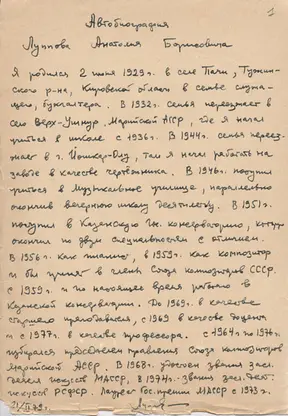 1
Автобиография
Луппова Анатолия Борисовича
Я родился 2 июня 1929 г. в селе Пачи, Тужин-
ского р-на, Кировской области в семье служа-
щего, бухгалтера. В 1932 г. семья переезжает в
село Верх-Ушнур Марийской АССР, где я начал
учиться в школе с 1936 г. В 1944 г. семья переез-
жает в г. Йошкар-Олу, там я начал работать на
заводе в качестве чертежника. В 1946 г. поступил
учиться в Музыкальное училище, параллельно
окончив вечернюю школу десятилетку. В 1951 г.
поступил в Казанскую Гос. консерваторию, которую
окончил по двум специальностям с отличием.
В 1956 г. как пианист, в 1959 г. как композитор
и был принят в члены Союза композиторов СССР.
С 1959 г. и по настоящее время работаю в
Казанской консерватории. До 1969 г. в качестве
старшего преподавателя, с 1969 в качестве доцента
и с 1977 г. в качестве профессора. С 1964 г. по 1974 г.
избирался председателем правления Союза композиторов
Марийской АССР. В 1968 г. удостоен звания засл.
деятеля искусств МАССР, в 1974 г. звания засл. деят.
искусств РСФСР. Лауреат Гос. премии МАССР с 1973 г.